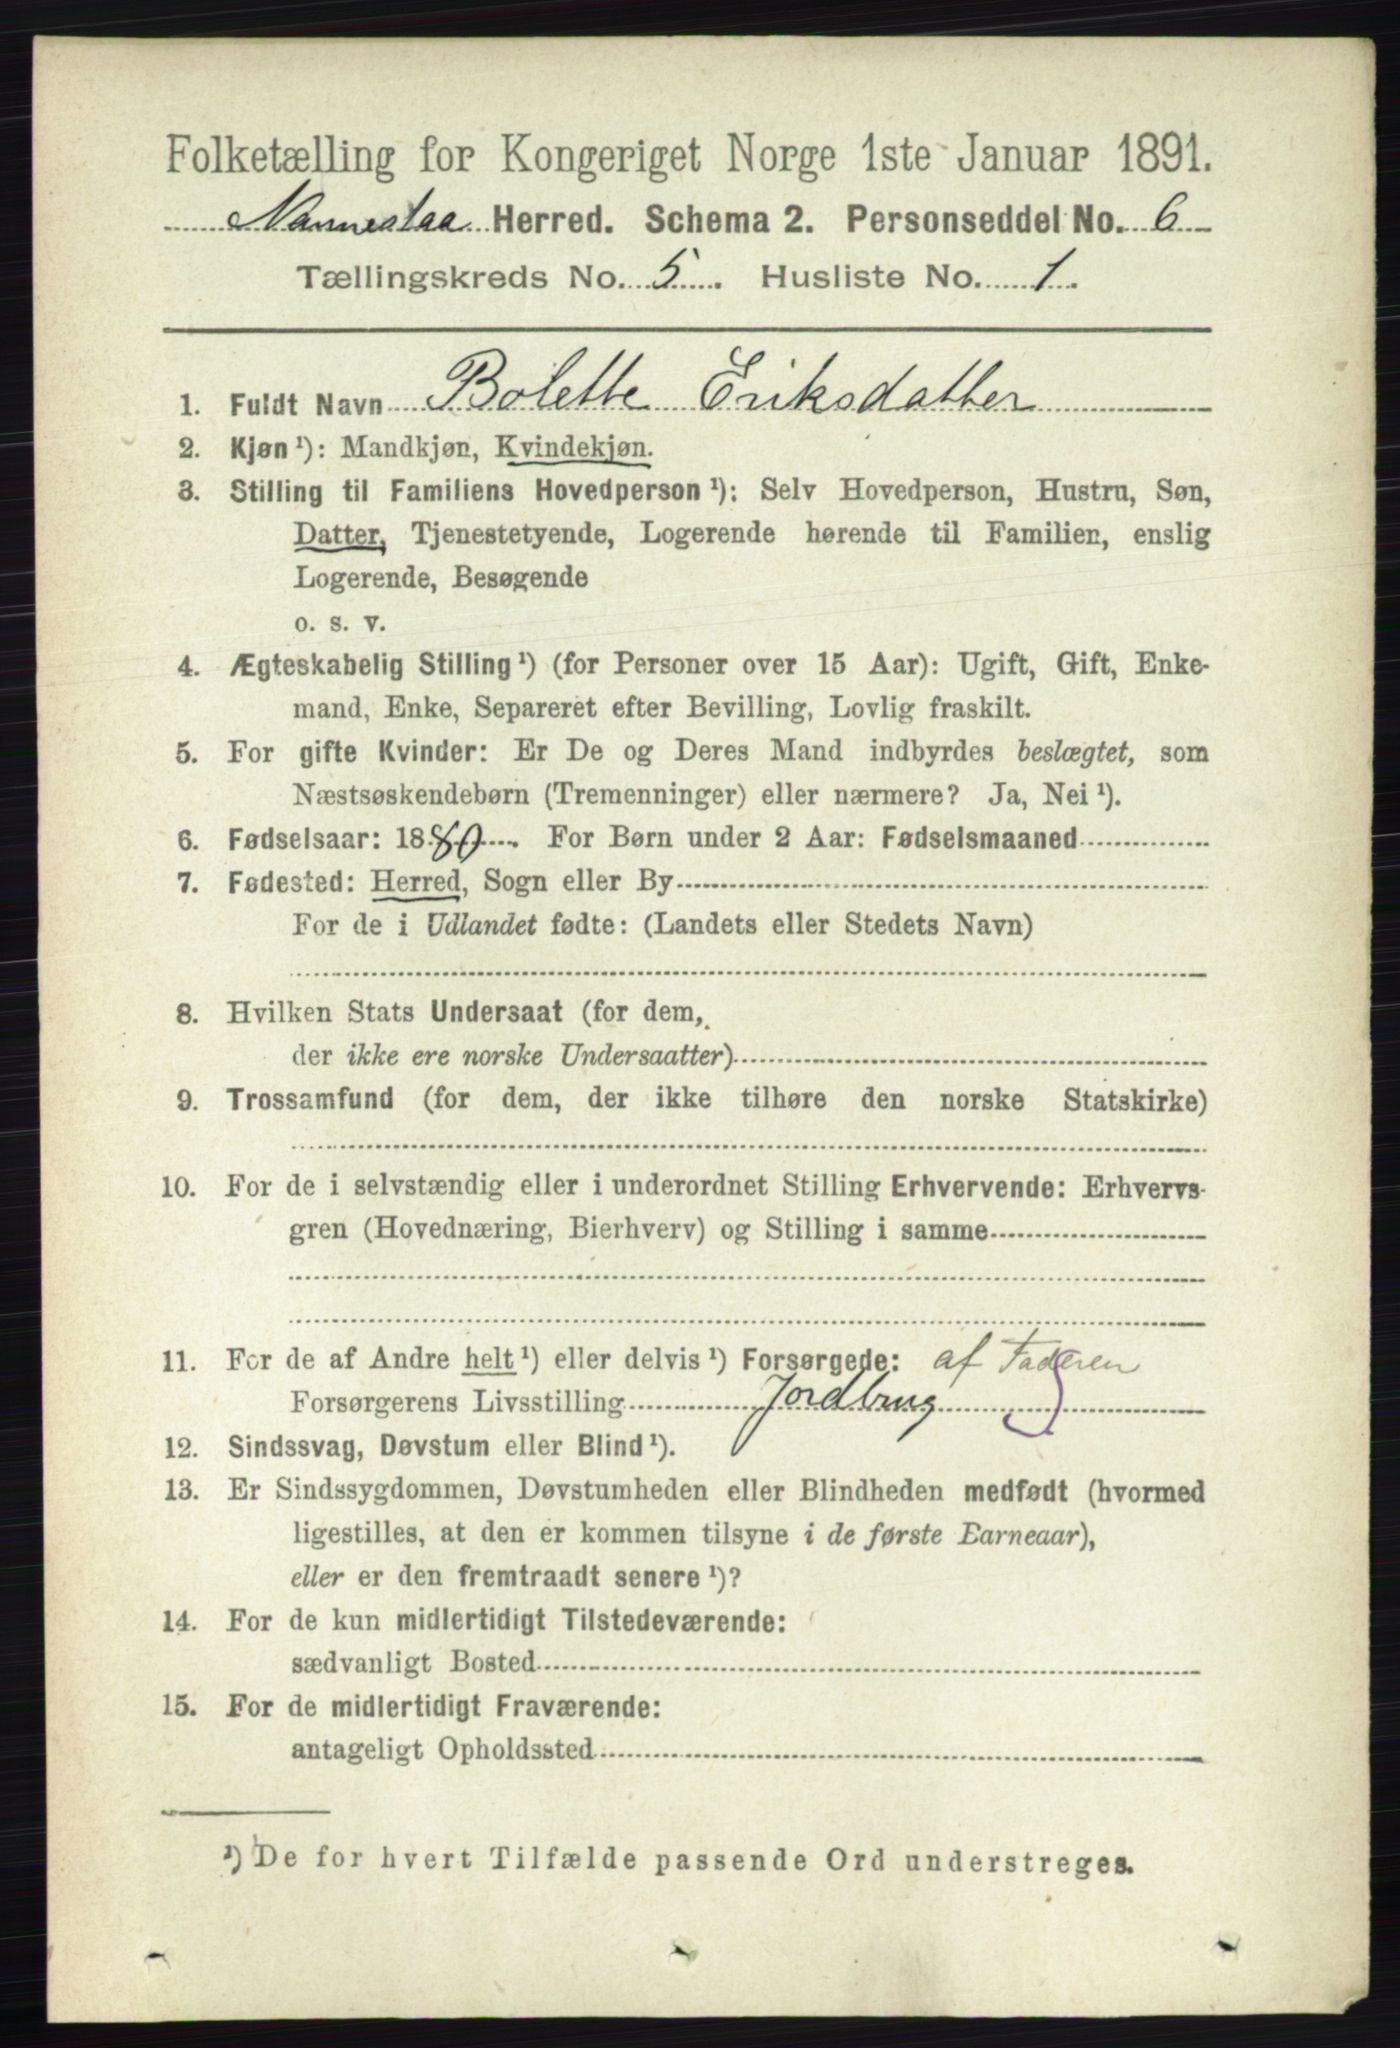 Folketælling for Kongeriget Norge 1ste Januar 1891.
Nannestaa Herred. Schema 2. Personseddel No. 6
Tællingskreds No. 5. Husliste No. 1.
1. Fuldt Navn Bolette Eriksdatter
2. Kjøn ¹): Mandkjøn, Kvindekjøn.
3. Stilling til Familiens Hovedperson ¹): Selv Hovedperson, Hustru, Søn,
Datter, Tjenestetyende, Logerende hørende til Familien, enslig
Logerende, Besøgende
o. s. v.
4. Ægteskabelig Stilling ¹) (for Personer over 15 Aar): Ugift, Gift, Enke-
mand, Enke, Separeret efter Bevilling, Lovlig fraskilt.
5. For gifte Kvinder: Er De og Deres Mand indbyrdes beslægtet, som
Næstsøskendebørn (Tremenninger) eller nærmere? Ja, Nei ¹).
6. Fødselsaar: 1880. For Børn under 2 Aar: Fødselsmaaned
7. Fødested: Herred, Sogn eller By
For de i Udlandet fødte: (Landets eller Stedets Navn)
8. Hvilken Stats Undersaat (for dem,
der ikke ere norske Undersaatter)
9. Trossamfund (for dem, der ikke tilhøre den norske Statskirke)
10. For de i selvstændig eller i underordnet Stilling Erhvervende: Erhvervs-
gren (Hovednæring, Bierhverv) og Stilling i samme
11. For de af Andre helt ¹) eller delvis ¹) Forsørgede: af Faderen
Forsørgerens Livsstilling Jordbrug
12. Sindssvag, Døvstum eller Blind ¹).
13. Er Sindssygdommen, Døvstumheden eller Blindheden medfødt (hvormed
ligestilles, at den er kommen tilsyne i de første Barneaar),
eller er den fremtraadt senere ¹)?
14. For de kun midlertidigt Tilstedeværende:
sædvanligt Bosted
15. For de midlertidigt Fraværende:
antageligt Opholdssted
¹) De for hvert Tilfælde passende Ord understreges.